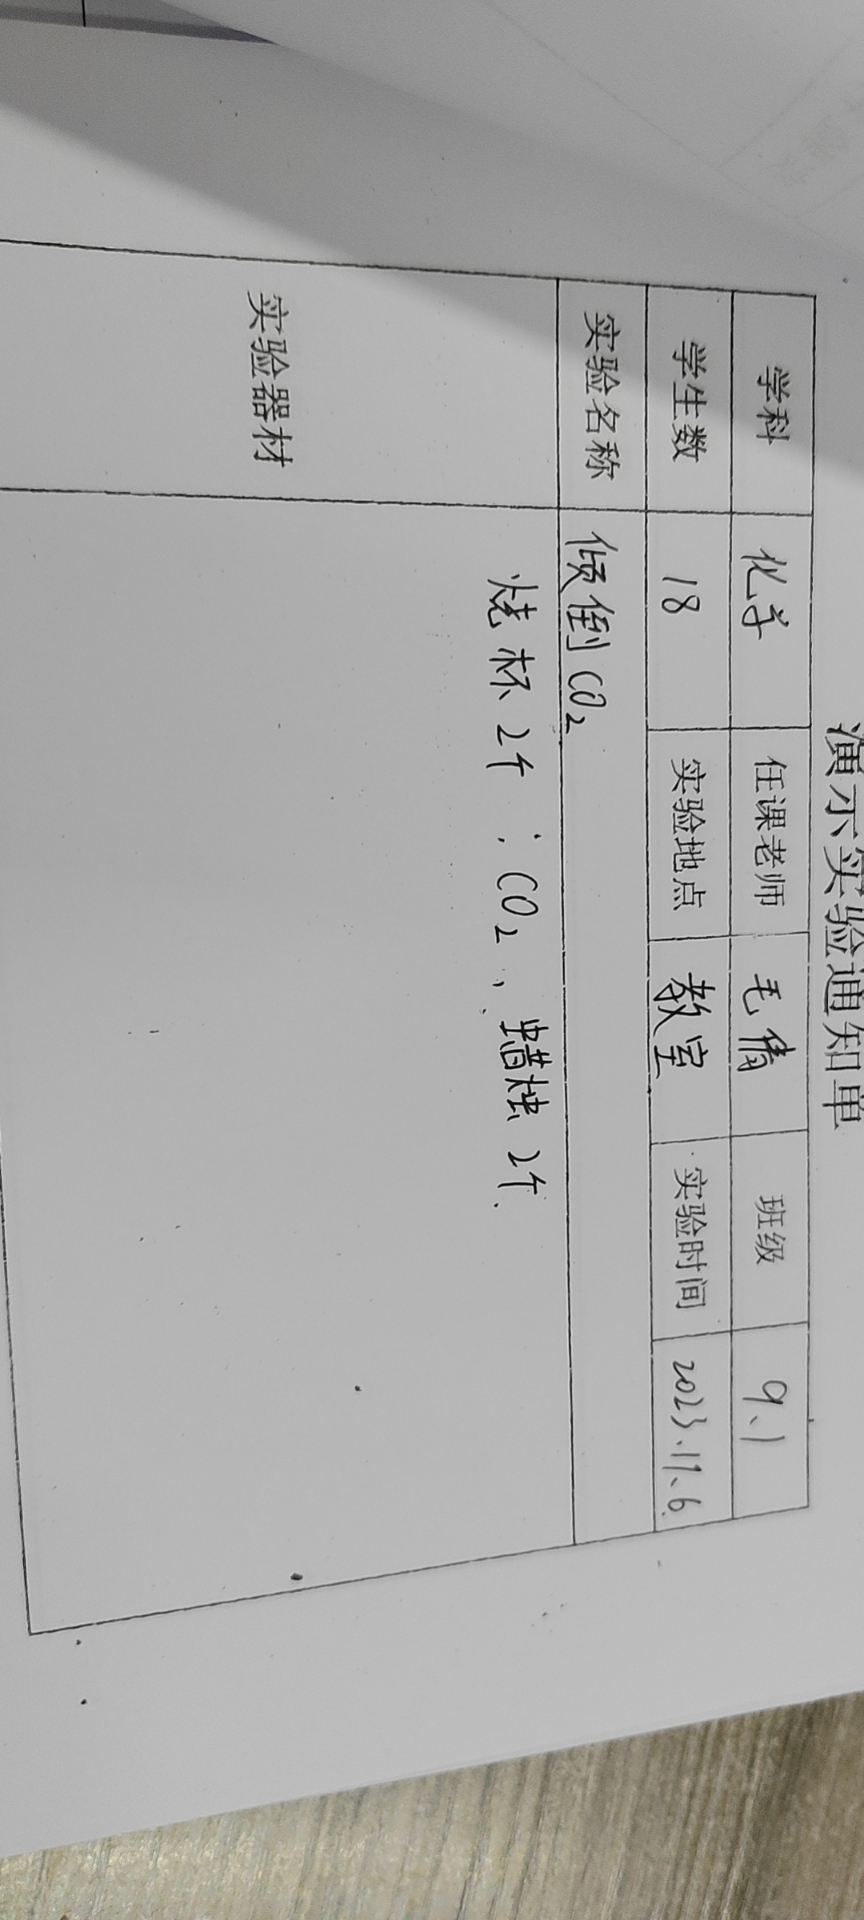 演示实验通知单
学科 化学 任课老师 毛倩 班级 9、1
学生数 18 实验地点 教室 实验时间 2023.11、6
实验名称 倾倒CO₂
实验器材 烧杯2个;CO₂、蜡烛2个.